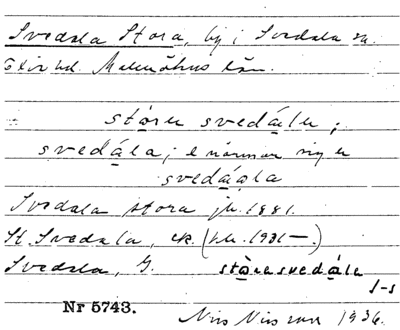 Svedala Stora, by i Svedala sn.
Oxie hd. Malmöhus län.
störu svedálu;
svedála; e närmar sig u
svedáola
Svedala stora jb. 1881.
St. Svedala, ek. (bl. 1931—.)
Svedala, G. störesvedåle
s-s
Nr 5743. Nils Nilsson 1936.